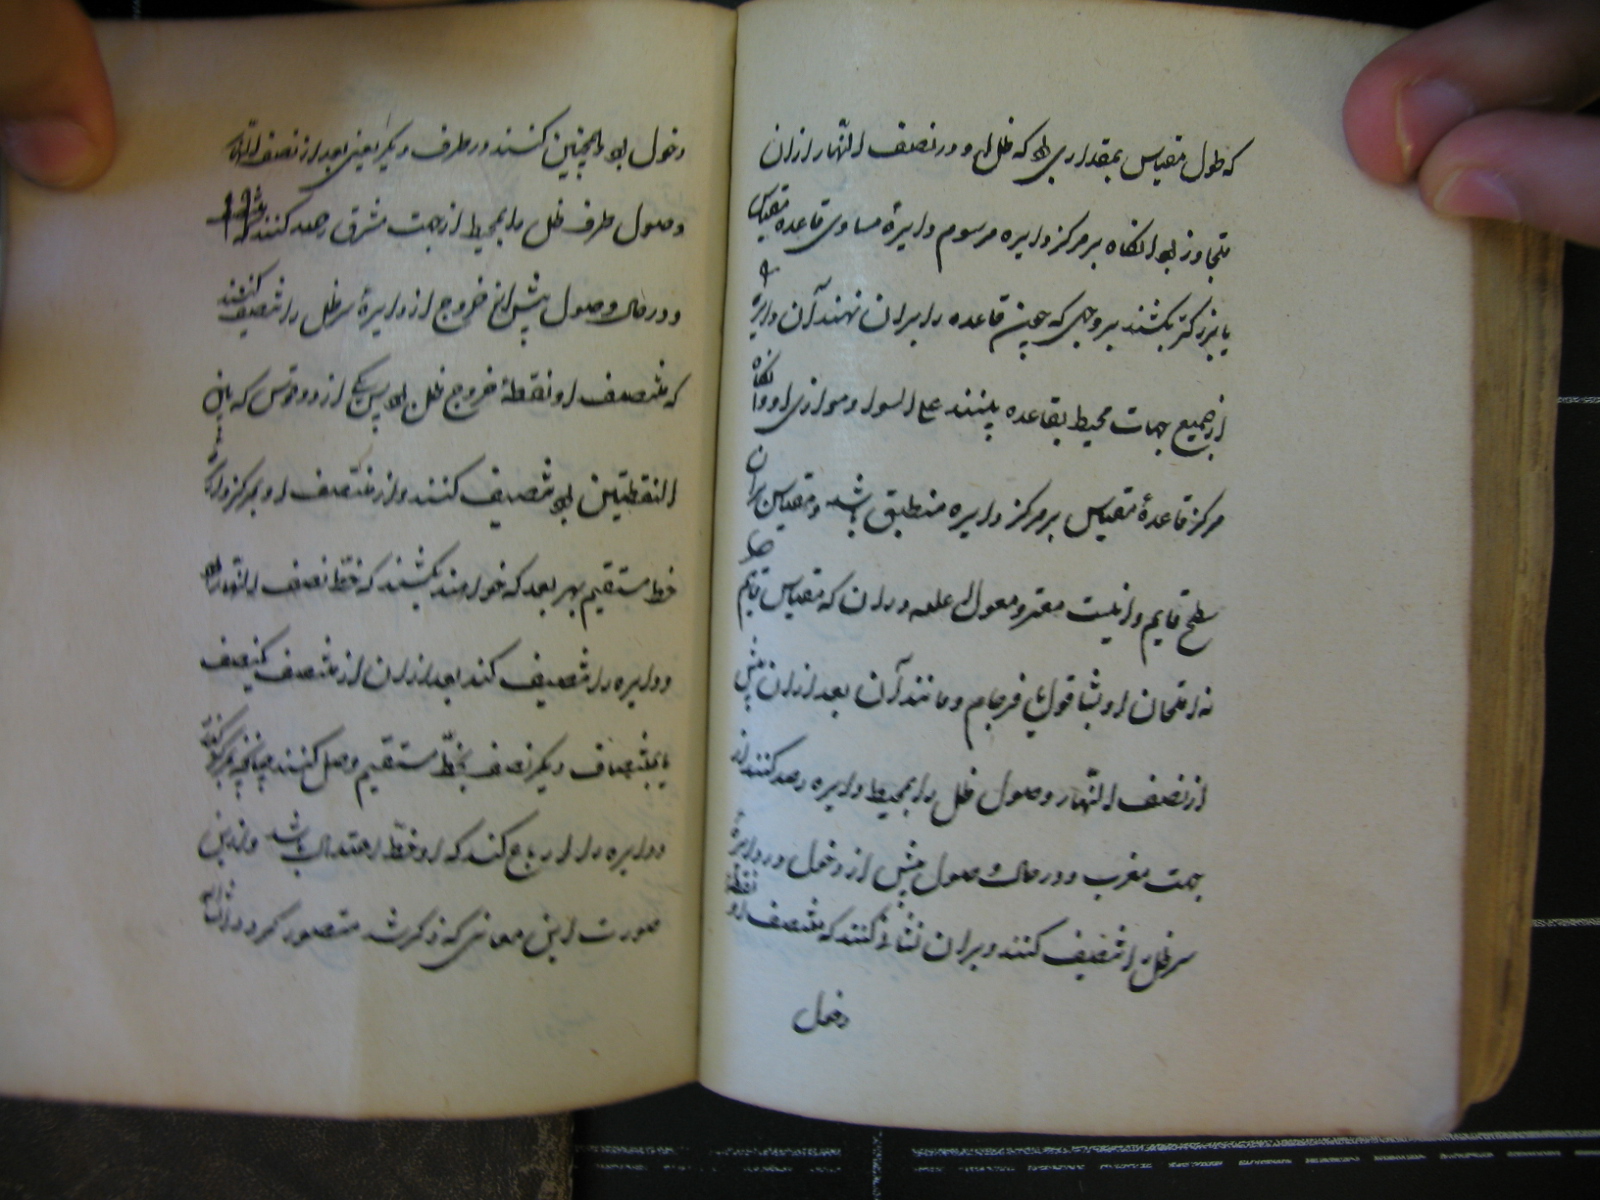 که طول مقیاس بمقداری بود که ظل او در نصف النهار ازان
متجاوز بود انکاه بر مرکز دایره مرسوم دایرهٔ مساوی قاعده مقیاس
یا بزرکتر بکشند بر وجهی که چون قاعده را بران نهند آن دایره
از جمیع جهات محیط بقاعده بینند علی السوا و موازی او وانکاه
مرکز قاعدهٔ مقیاس بر مرکز دایره منطبق باشد و مقیاس بران
سطح قایم و اینست معتبر و معول علیه دران که مقیاس قایم
نه امتحان او بشاقول یا فرجام و مانند آن بعد ازان پیش
از نصف النهار وصول ظل را بمحیط دایره رصد کنند از
جهت مغرب و در حالت وصول پیش از دخول در دایرهٔ
سر ظل را تنصیف کنند و بران نشان کنند که منتصف او نقطهٔ
دخول
دخول بود و همچنین کنند در طرف دیکر یعنی بعد از نصف النهار
وصول طرف ظل را بمحیط از جهت مشرق رصد کنند
و در حالت وصول پیش از خروج از دایرهٔ سر ظل را تنصیف کنند
که منتصف او نقطهٔ خروج ظل بود پس یکی از دو قوس که ما بین
النقطتین بود تنصیف کنند و از منتصف او بمرکز دایره
خط مستقیم بهر بعد که خواهند بکشند که خط نصف النهار بود
و دایره را تنصیف کند بعد ازان از منتصف یک نصف
تا بمنتصف دیکر نصف بخط مستقیم وصل کنند چنانچه بمرکز کذرد
و دایره را ارباع کند که او خط اعتدال باشد و ازین
صورت این معانی که ذکر شد متصور کردد